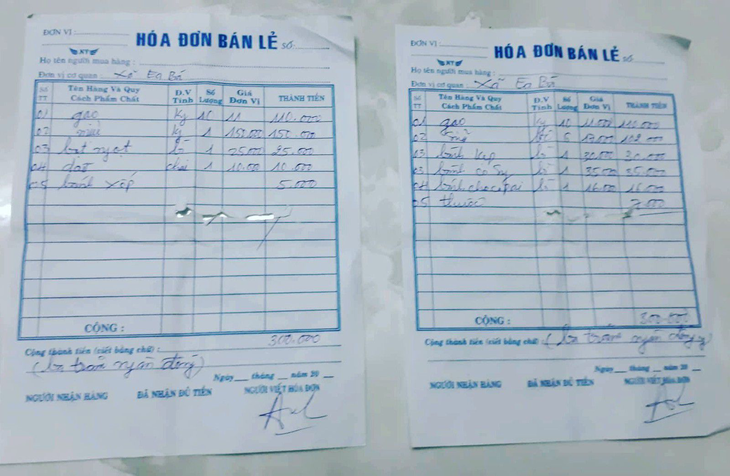 ĐƠN VỊ :
HÓA ĐƠN BÁN LẺ SỐ
XT
Họ tên người mua hàng :
Đơn vị cơ quan Xã Ea Bá
Số TT Tên Hàng Và Quy Cách Phẩm Chất Đ.V Tính Số Lượng Giá Đơn Vị THÀNH TIỀN
01 gạo kg 10 11 110.000
02 kg 1 150.000 150.000
03 bột ngọt 1 25.000 25.000
04 dầu chai 1 10.00 10.000
05 bánh xếp 5.000
CỘNG :
300.000
Cộng thành tiền (viết bằng chữ) :
(ba trăm ngàn đồng)
Ngày tháng năm 20
NGƯỜI NHẬN HÀNG ĐÃ NHẬN ĐỦ TIỀN NGƯỜI VIẾT HÓA ĐƠN
ĐƠN VỊ :
HÓA ĐƠN BÁN LẺ SỐ
XT
Họ tên người mua hàng :
Đơn vị cơ quan Xã Ea Bá
Số TT Tên Hàng Và Quy Cách Phẩm Chất Đ.V Tính Số Lượng Giá Đơn Vị THÀNH TIỀN
01 gạo kg 10 11.000 110.000
02 5
03 bánh 1 30.000
03 bánh 1 35.00 35.000
04 bánh 1 16.00 16.000
05 thuốc
CỘNG : 300.000
Cộng thành tiền (viết bằng chữ) :
(ba trăm ngàn đồng)
Ngày tháng năm 20
NGƯỜI NHẬN HÀNG ĐÃ NHẬN ĐỦ TIỀN NGƯỜI VIẾT HÓA ĐƠN